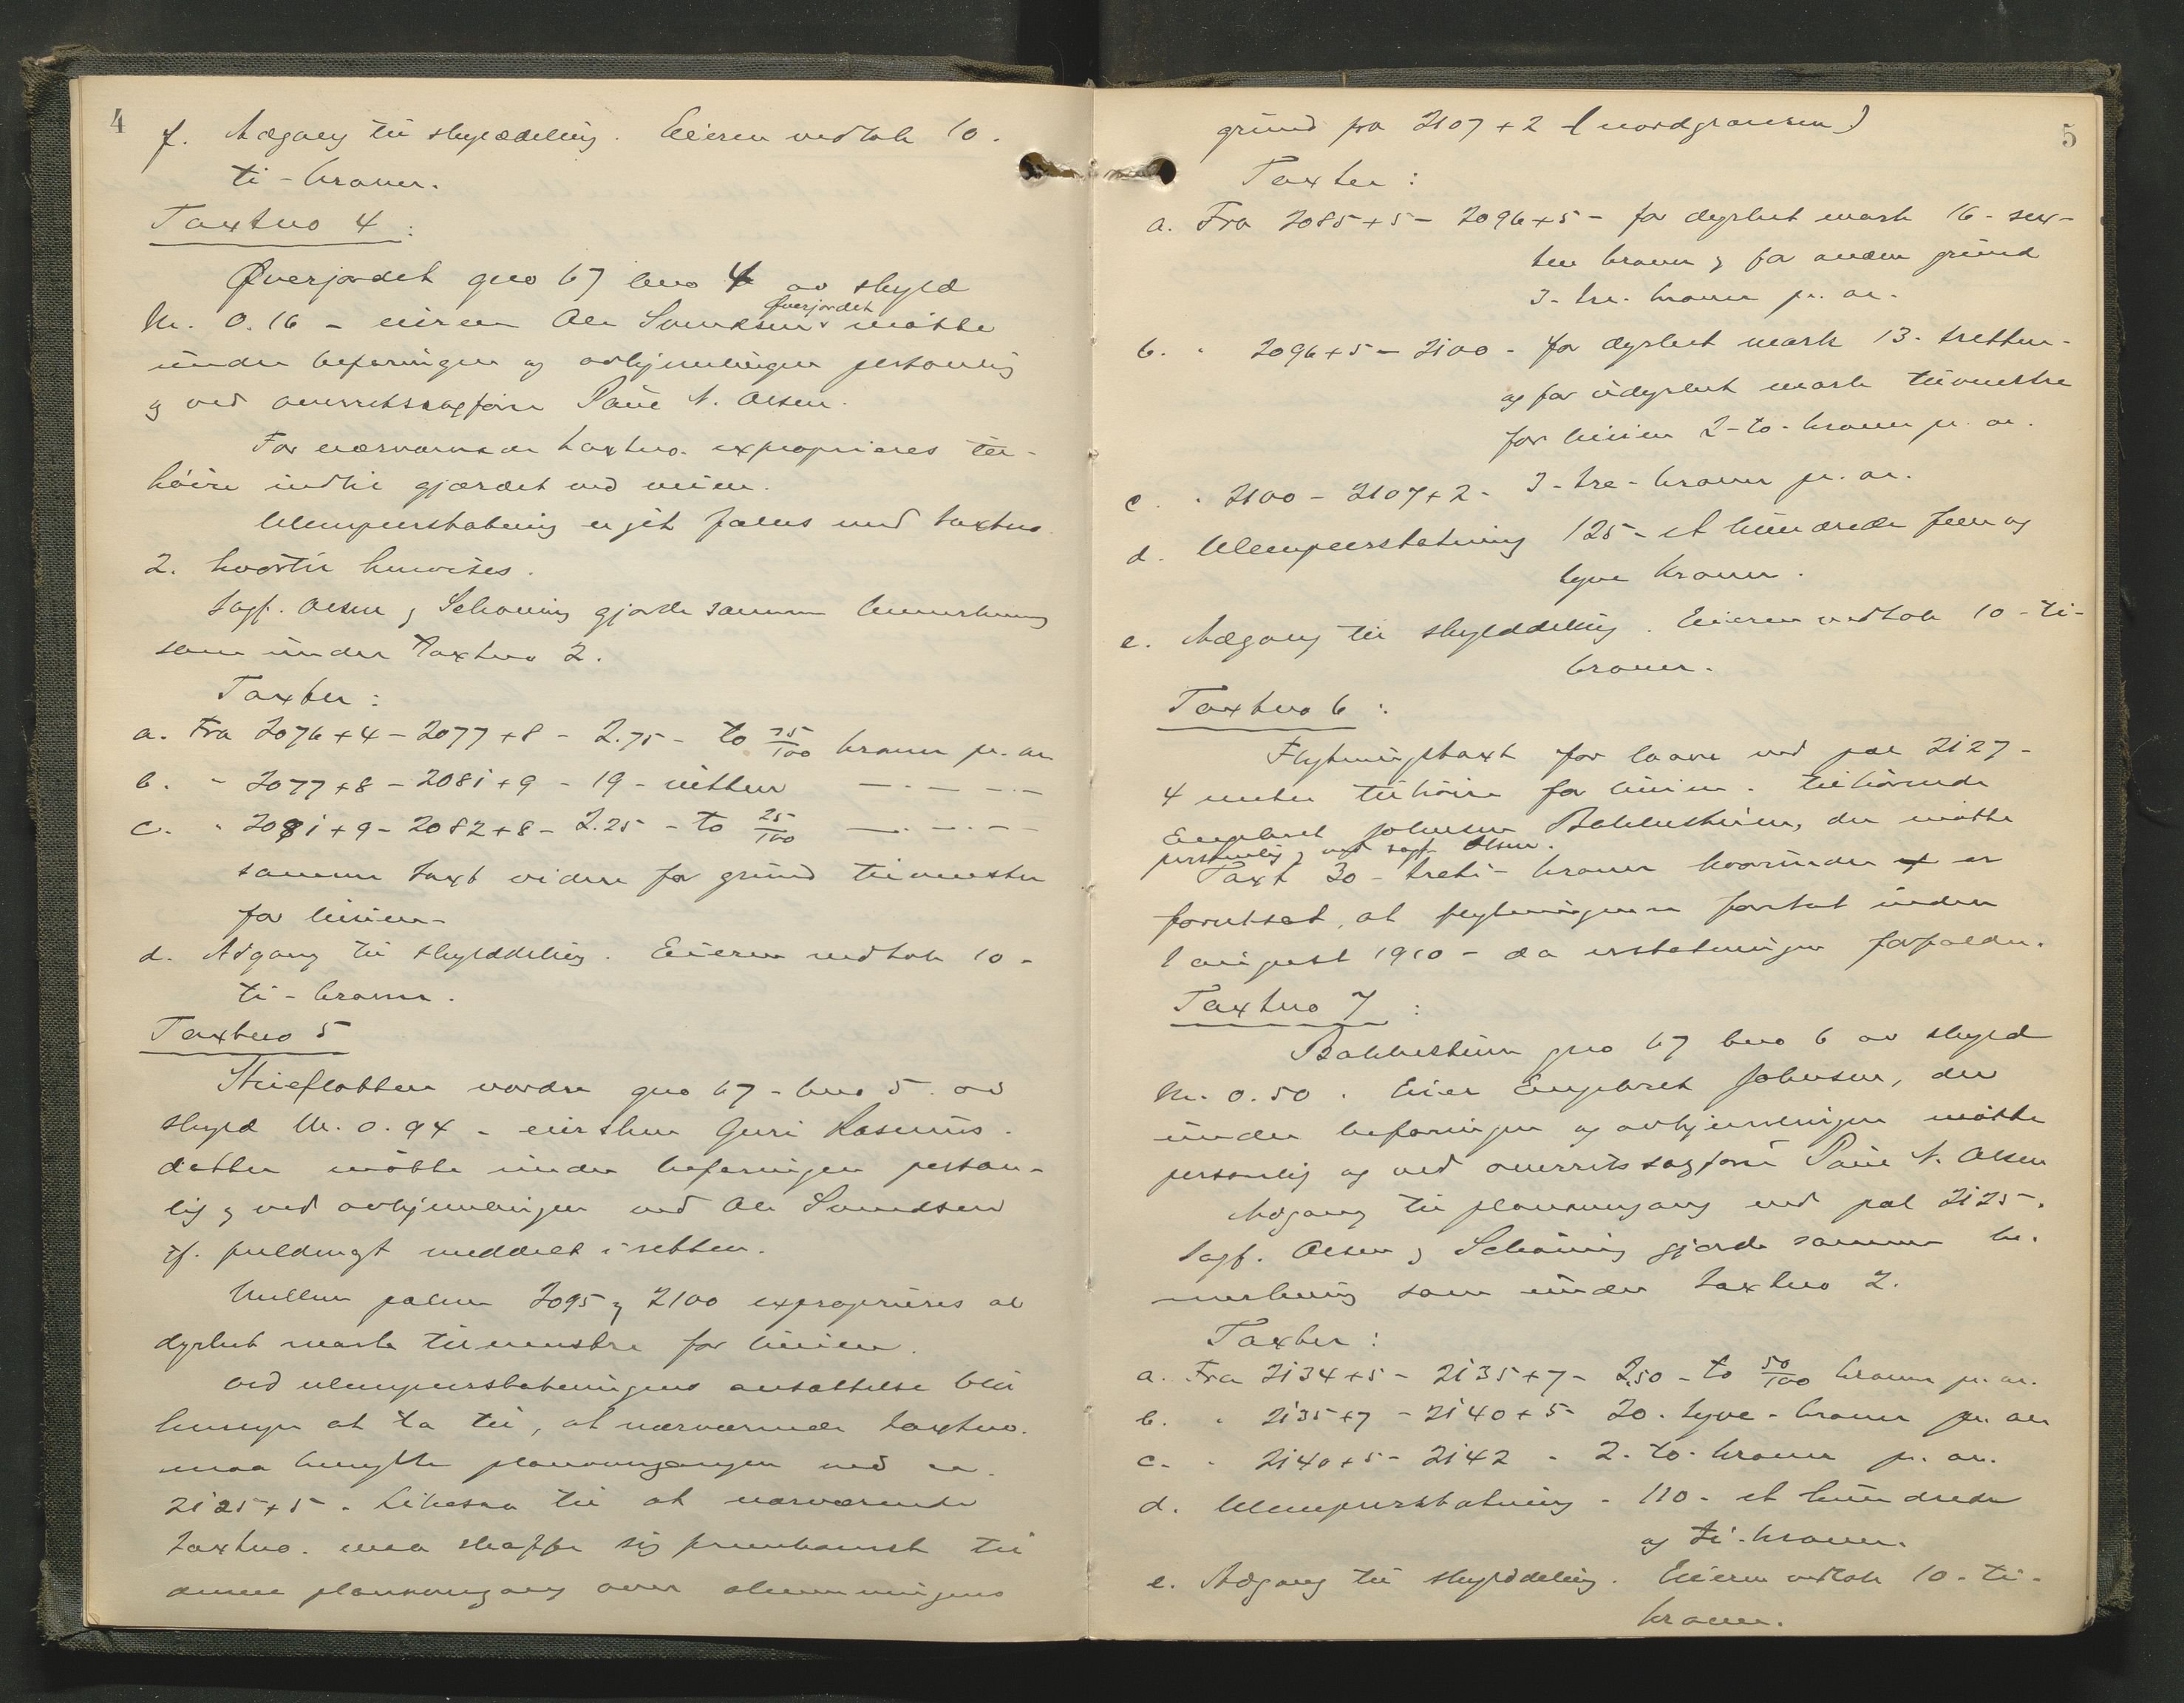 4
f. Adgang til skylddeling. Eieren vedtok 10.
ti-kroner.
Taxtno 4:
Øverjordet gno 67 bno 4 av skyld
Mr. 0.16 - eieren Ole Svendsen Øverjordet møtte
under befaringen og avhjemlingen personlig
og ved overretssagfører Paul N. Olsen.
For nærværende taxtno. exproprieres til-
høire indtil gjærdet ved veien.
Ulempeerstatning er git fælles med taxtno.
2. hvortil henvises.
Sagf. Olsen og Schøning gjorde samme bemerkning
som under Taxtno 2.
Taxter:
a. Fra 2076+4 - 2077+8 - 2.75 - to 75/100 kroner pr. ar
b. - 2077+8 - 2081+9 - 19 - nitten —.—.—.—
c. - 2081+9 - 2082+8 - 2.25 - to 25/100 —.—.—
samme taxt videre for grund tilvenstre
for linien -
d. Adgang til skylddeling. Eieren vedtok 10 -
ti-kroner.
Taxtno 5
nordre gno 67 - bno 5. av
skyld M. 0.94 - eiersken Guri Rasmus-
datter møtte under befaringen person-
lig og ved avhjemlingen ved Ole Svendsen
if. fuldmagt meddelt i retten.
Mellem pælene 2095 og 2100 exproprieres al
dyrket mark tilvenstre for linien.
Ved ulempeerstatningens ansættelse blir
hensyn at ta til, at nærværende taxtno.
maa benytte planovergangen ved ca.
2125+5. Likesaa til at nærværende
taxtno. maa skaffe sig fremkomst til
denne planovergang over almenningens
5
grund fra 2107+2 (nordgrænsen)
Taxter:
a. Fra 2085+5 - 2096+5 - for dyrket mark 16 - sex-
ten kroner og for anden grund
3 - tre - kroner pr. ar.
b. - 2096+5 - 2100 - for dyrket mark 13 - tretten -
og for udyrket mark tilvenstre
for linien 2 - to - kroner pr. ar.
c. - 2100 - 2107+2 - 3 - tre - kroner pr. ar.
d. Ulempeerstatning 125 - et hundrede fem og
tyve kroner.
e. Adgang til skylddeling. Eieren vedtok 10 - ti-
kroner.
Taxtno 6:
Flytningstaxt for laave ved pæl 2127 -
4 meter tilhøire for linien. Tilhørende
Engebret Johnsen Bakkestuen, der møtte
personlig og ved sagf. Olsen.
Taxt 30 - treti - kroner hvorunder er
forutsat, at flytningen er foretat inden
1 august 1910 - da erstatningen forfalder.
Taxtno 7:
Bakkestuen gno 67 bno 6 av skyld
M. 0.50. Eier Engebret Johnsen, der
under befaringen og avhjemlingen møtte
personlig og ved overretssagfører Paul N. Olsen
Adgang til planovergang ved pæl 2125.
Sagf. Olsen og Schøning gjorde samme be-
merkning som under taxtno 2.
Taxter:
a. Fra 2134+5 - 2135+7 - 2.50 - to 50/100 kroner pr. ar.
b. - 2135+7 - 2140+5 - 20 - tyve - kroner pr. ar
c. - 2140+5 - 2142 - 2 - to - kroner pr. ar.
d. Ulempeerstatning - 110 - et hundrede
og ti - kroner.
e. Adgang til skylddeling. Eieren vedtok 10 - ti -
kroner.